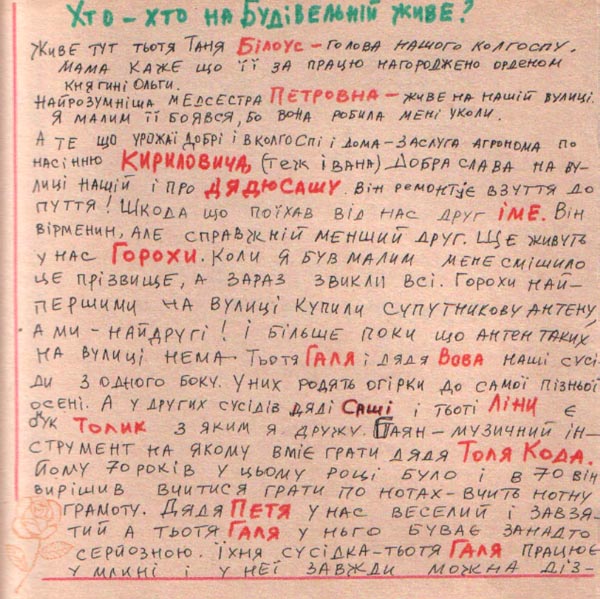 Хто - хто на Будівельній живе?
Живе тут тьотя Таня Білоус - голова нашого колгоспу.
Мама каже що її за працю нагороджено орденом
княгині Ольги.
Найрозумніша медсестра Петровна - живе на нашій вулиці.
Я малим її боявся, бо вона робила мені уколи.
А те що урожаї добрі і в колгоспі і дома - заслуга агронома по
насінню Кириловича, (теж Івана) Добра слава на ву-
лиці нашій і про дядю Сашу. Він ремонтує взуття до
пуття! Шкода що поїхав від нас друг Іме. Він
вірменин, але справжній менший друг. Ще живуть
у нас Горохи. Коли я був малим мене смішило
це прізвище, а зараз звикли всі. Горохи най-
першими на вулиці купили супутникову антену,
а ми - найдругі! І більше поки що антен таких
на вулиці нема. Тьотя Галя і дядя Вова наші сусі-
ди з одного боку. У них родять огірки до самої пізньої
осені. А у других сусідів дяді Саші і тьоті Ліни є
ук Толик з яким я дружу. Баян - музичний ін-
струмент на якому вміє грати дядя Толя Кода.
Йому 70 років у цьому році було і в 70 він
вирішив вчитися грати по нотах - вчить нотну
грамоту. Дядя Петя у нас веселий і завзя-
тий а тьотя Галя у нього буває занадто
серйозною. Їхня сусідка - тьотя Галя працює
у млині і у неї завжди можна діз-